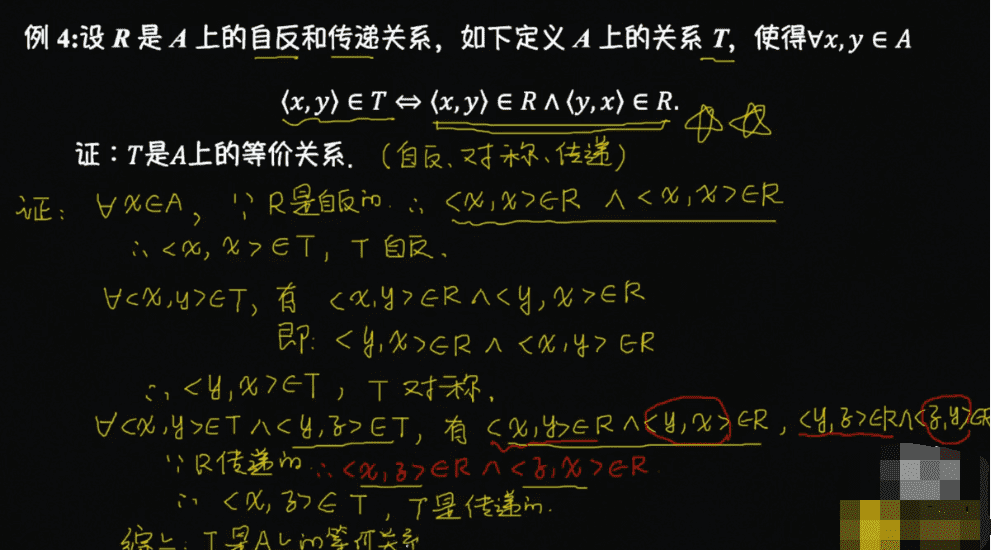 例 4:设 R 是 A 上的自反和传递关系，如下定义 A 上的关系 T，使得∀x, y ∈ A
⟨x, y⟩ ∈ T ⇔ ⟨x, y⟩ ∈ R ∧ ⟨y, x⟩ ∈ R.
证：T是A上的等价关系. (自反、对称、传递)
证: ∀x∈A, ∵ R是自反的 ∴ <x,x>∈R ∧ <x,x>∈R
∴ <x, x>∈T, T 自反.
∀<x,y>∈T, 有 <x,y>∈R ∧ <y, x>∈R
即: <y,x>∈R ∧ <x,y> ∈R
∴ <y,x>∈T, T 对称.
∀<x,y>∈T ∧ <y,z>∈T, 有 <x,y>∈R ∧ <y,x>∈R, <y,z>∈R ∧ <z,y>∈R
∵ R传递的 ∴ <x,z>∈R ∧ <z,x>∈R.
∴ <x,z>∈T, T是传递的.
综上: T是A上的等价关系